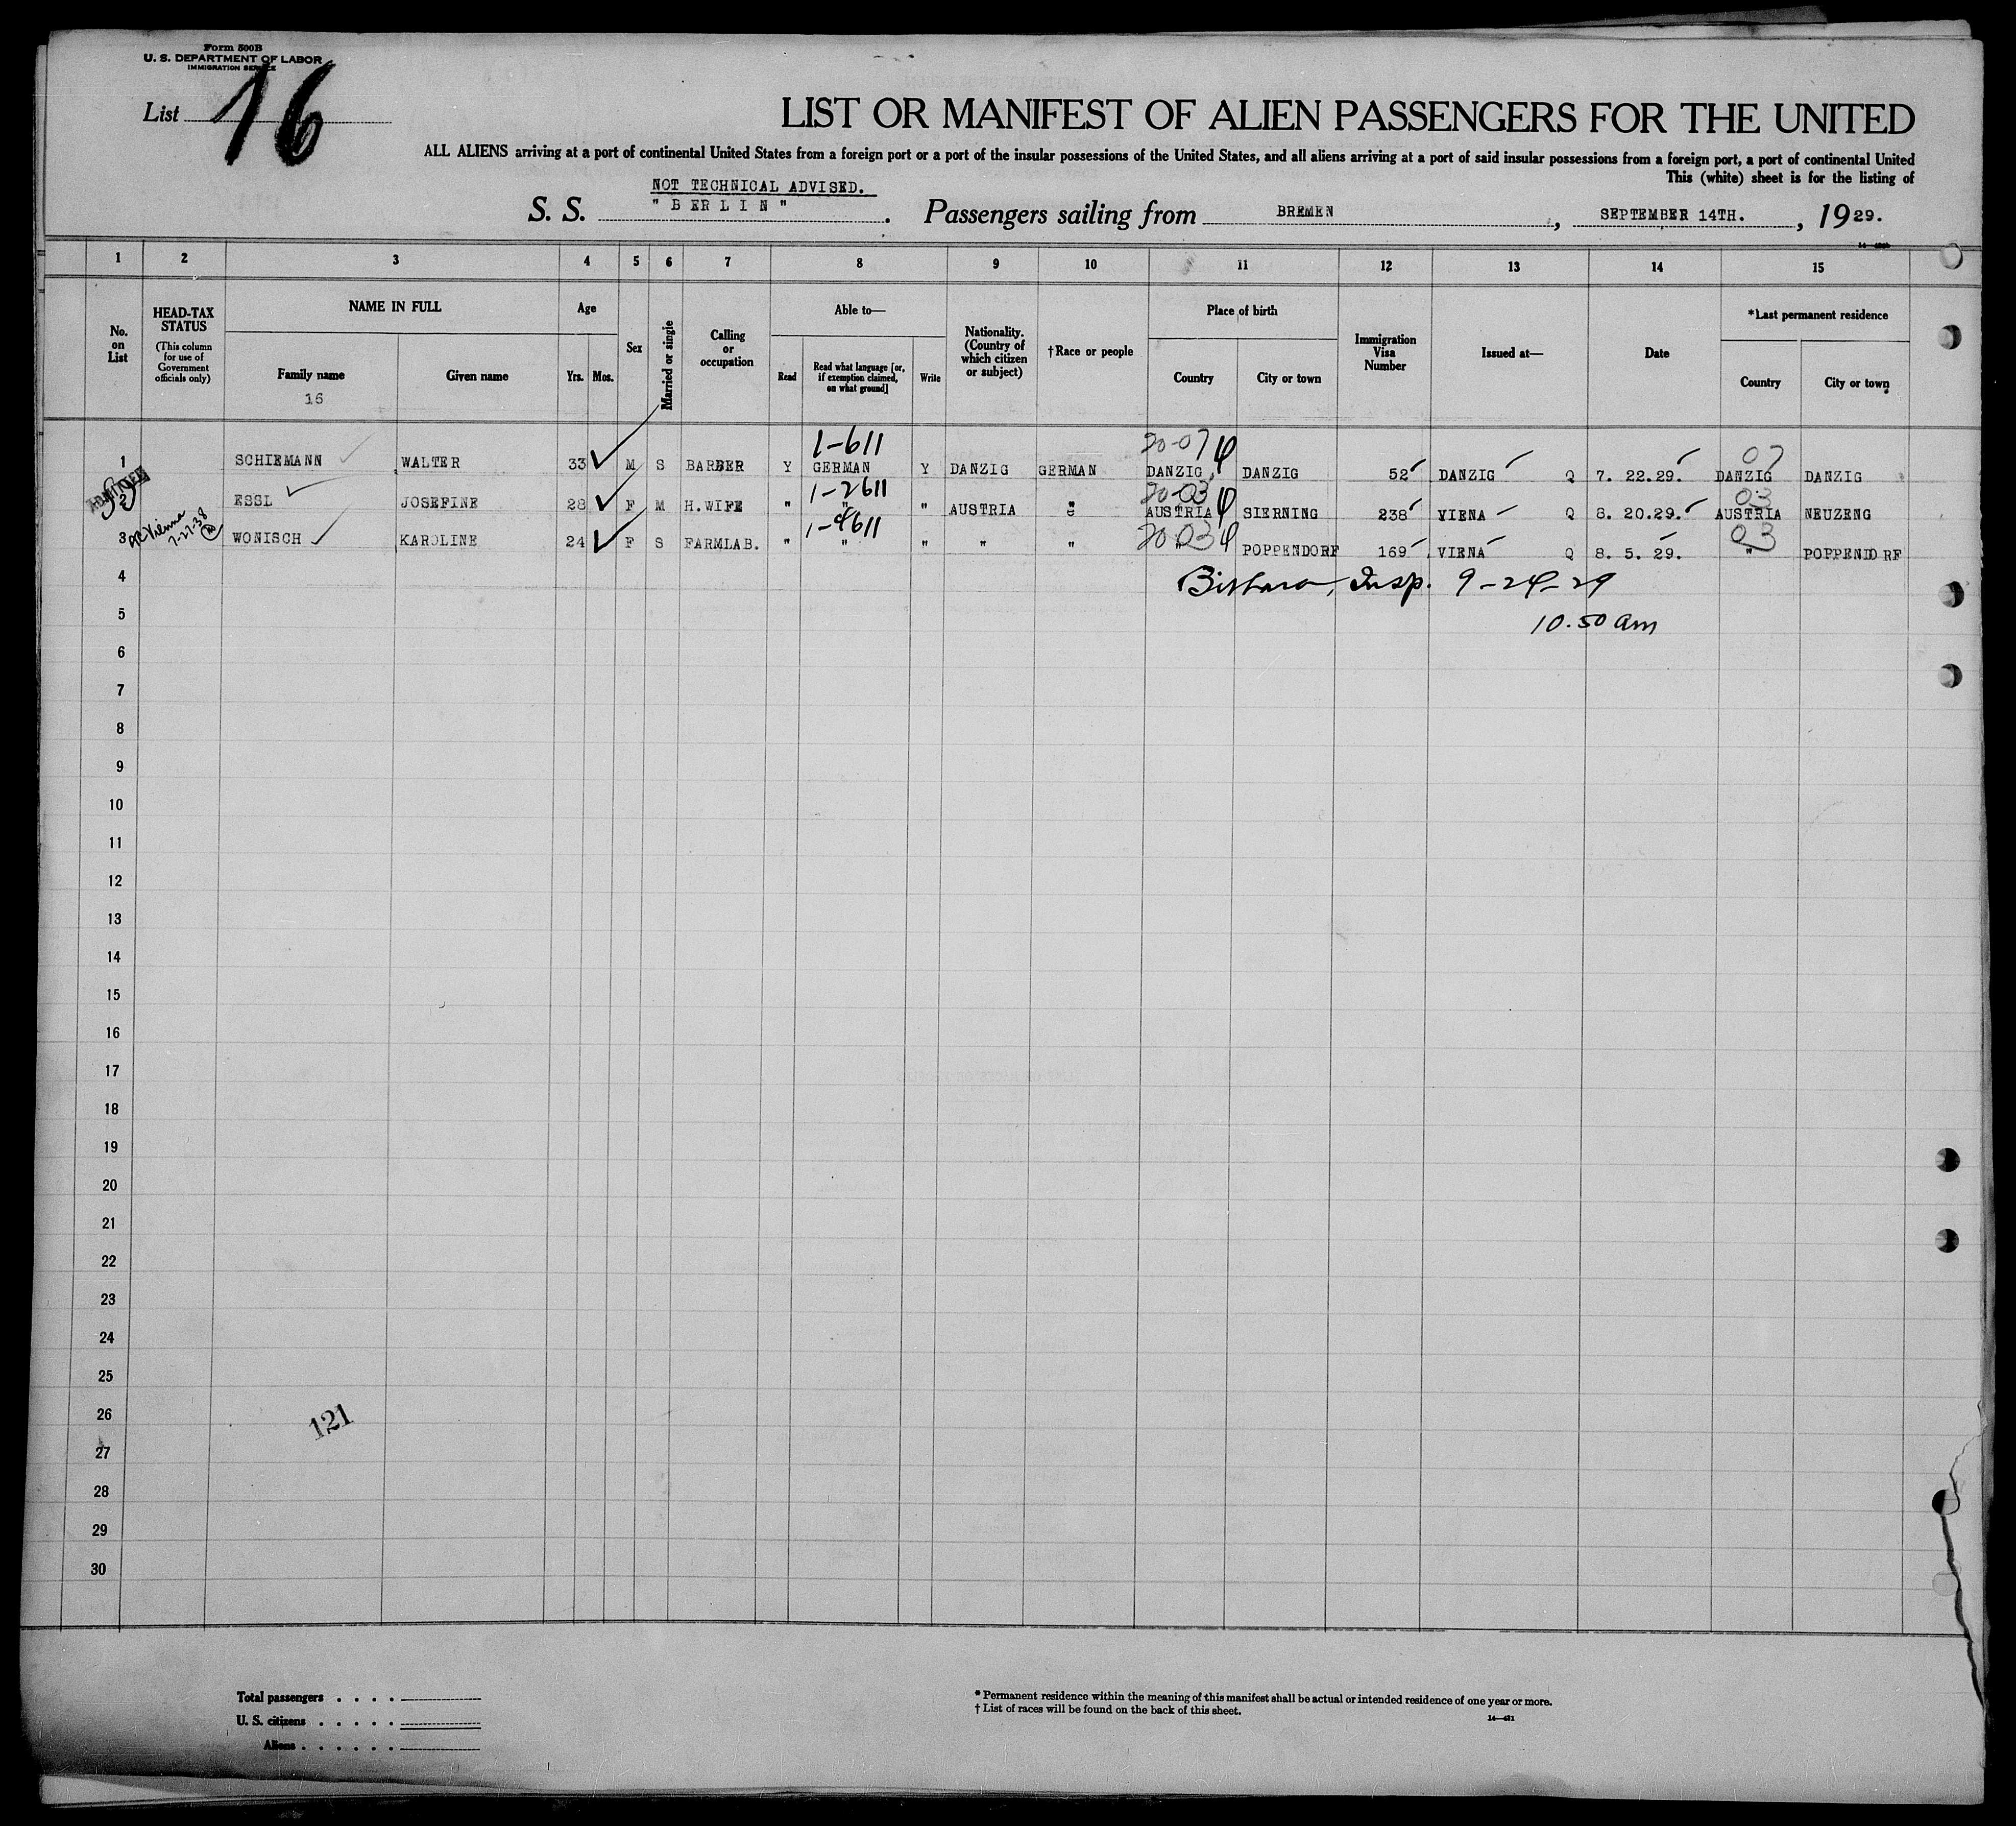 Form 500B
U. S. DEPARTMENT OF LABOR
IMMIGRATION SERVICE
List 16
LIST OR MANIFEST OF ALIEN PASSENGERS FOR THE UNITED
ALL ALIENS arriving at a port of continental United States from a foreign port or a port of the insular possessions of the United States, and all aliens arriving at a port of said insular possessions from a foreign port, a port of continental United
This (white) sheet is for the listing of
NOT TECHNICAL ADVISED.
S. S. "BERLIN". Passengers sailing from BREMEN, SEPTEMBER 14TH., 1929.
1 2 3 4 5 6 7 8 9 10 11 12 13 14 15
No. on List
HEAD-TAX STATUS
(This column for use of Government officials only)
NAME IN FULL
Family name
16
Given name
Age
Yrs. Mos.
Sex
Married or single
Calling or occupation
Able to—
Read
Read what language [or, if exemption claimed, on what ground]
Write
Nationality. (Country of which citizen or subject)
†Race or people
Place of birth
Country
City or town
Immigration Visa Number
Issued at—
Date
*Last permanent residence
Country
City or town
1-611 20-07 07
1 SCHIEMANN WALTER 33 M S BARBER Y GERMAN Y DANZIG GERMAN DANZIG, DANZIG 52 DANZIG Q 7. 22.29. DANZIG DANZIG
ADMITTED
1-2611 20-03 03
2 ESSL JOSEFINE 28 F M H.WIFE " " " AUSTRIA " AUSTRIA SIERNING 238 VIENA Q 8. 20.29. AUSTRIA NEUZENG
Vienna 7-27-38
1-4611 20-03 03
3 WONISCH KAROLINE 24 F S FARMLAB. " " " " " " POPPENDORF 169 VIENA Q 8. 5. 29. " POPPENDORF
4 Insp. 9-24-29
5 10.50 am
6
7
8
9
10
11
12
13
14
15
16
17
18
19
20
21
22
23
24
25
26
121
27
28
29
30
Total passengers . . . .
U. S. citizens . . . . .
Aliens . . . . . .
* Permanent residence within the meaning of this manifest shall be actual or intended residence of one year or more.
† List of races will be found on the back of this sheet.